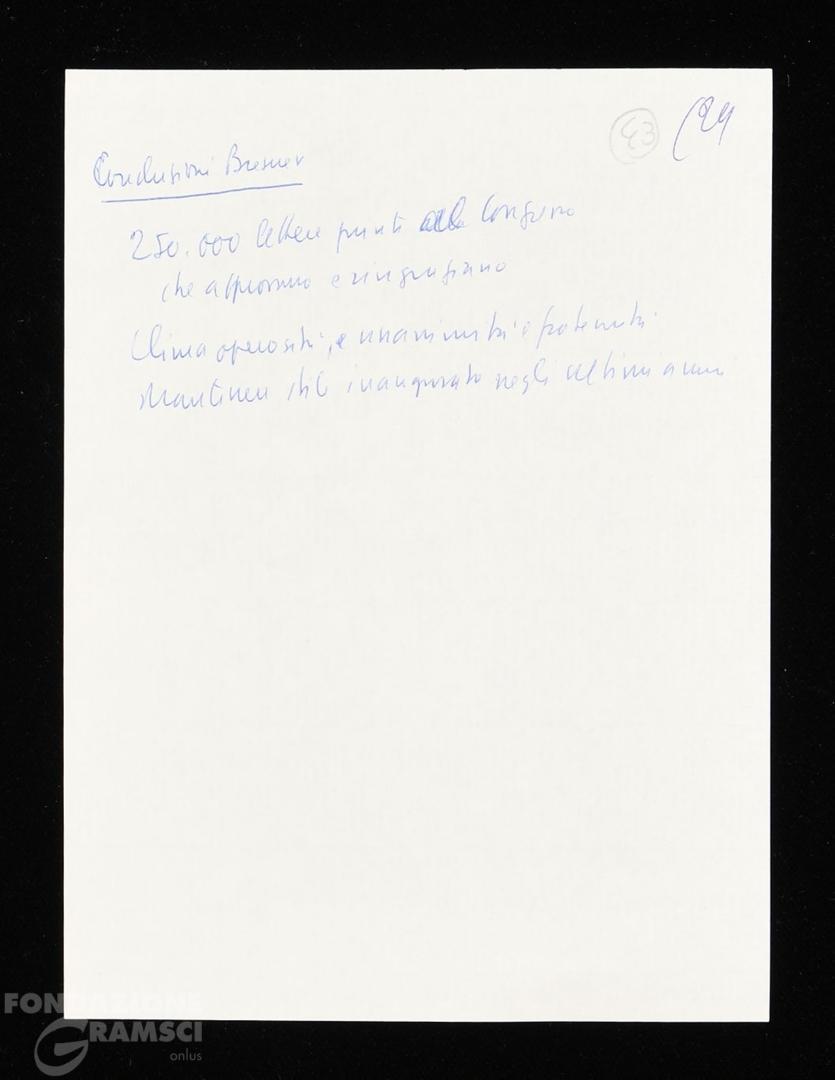 43 (24
Conclusioni Bresnev
250.000 lettere giunte al Congresso
che approvano e ringraziano
Clima operosità, e unanimità e fraternità
Mantenere stile inaugurato negli ultimi anni
FONDAZIONE
GRAMSCI
onlus